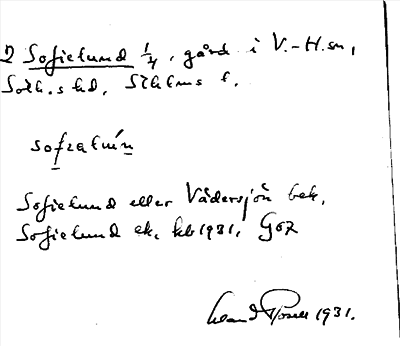 2 Sofielund 1/4, gård i V.-H. sn,
Sotl.s hd, Sthlms l.
sofialún
Sofielund eller Vådersjön bek.
Sofielund ek. kb 1931, G02
1931.